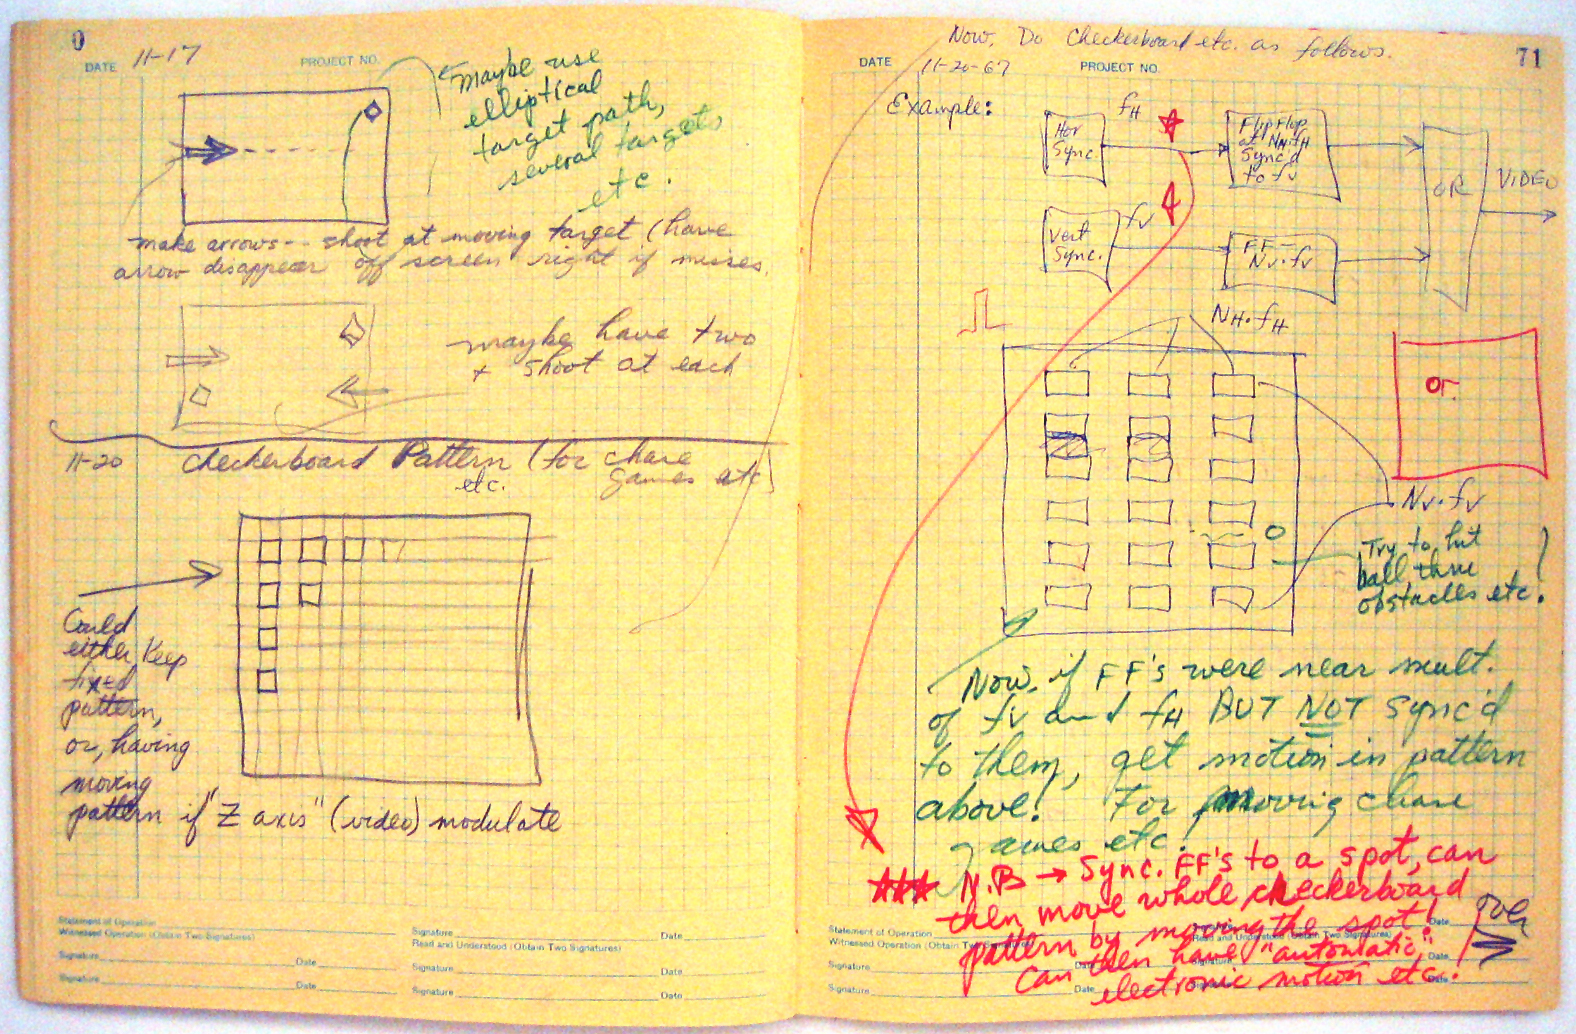 0
DATE 11-17 PROJECT NO.
Maybe use
elliptical
target path,
several targets
etc.
make arrows-- shoot at moving target (have
arrow disappear off screen right if misses.
maybe have two
+ shoot at each
11-20 Checkerboard Pattern (for chase
etc. games etc)
Could
either keep
fixed
pattern,
or, having
moving
pattern if "Z axis" (video) modulate
Statement of Operation
Witnessed Operation (Obtain Two Signatures)
Signature Date
Signature Date
Signature Date
Read and Understood (Obtain Two Signatures)
Signature Date
Signature Date
Now, Do Checkerboard etc. as follows.
71
DATE 11-20-67 PROJECT NO.
Example:
Hor
Sync.
fH
FlipFlop
at NH·fH
Sync'd
to fv
OR
VIDEO
Vert
Sync.
fv
FF-
Nv·fv
NH·fH
or
Nv·fv
Try to hit
ball thru
obstacles etc!
Now, if FF's were near mult.
of fv and fH BUT NOT sync'd
to them, get motion in pattern
above! For moving chase
games etc!
N.B → Sync. FF's to a spot, can
then move whole checkerboard
pattern by moving the spot!
Can then have "automatic,"
electronic motion etc.!
over
Statement of Operation
Date
Witnessed Operation (Obtain Two Signatures)
Read and Understood (Obtain Two Signatures)
Signature Date
Signature Date
Signature Date
Signature Date